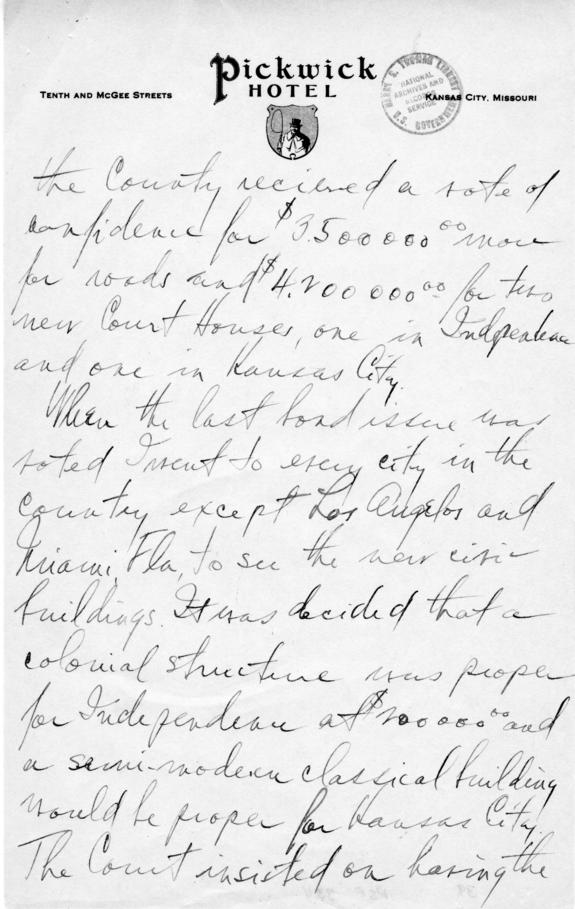 Pickwick
HOTEL
TENTH AND MCGEE STREETS
KANSAS CITY, MISSOURI
HARRY S. TRUMAN LIBRARY
NATIONAL
ARCHIVES AND
RECORDS
SERVICE
U.S. GOVERNMENT
the County recieved a vote of
confidence for $3,500000⁰⁰ more
for roads and $4,200000⁰⁰ for two
new Court Houses, one in Independence
and one in Kansas City.
When the last bond issue was
voted I went to every city in the
country except Los Angelos and
Miami, Fla, to see the new civic
buildings. It was decided that a
colonial structure was proper
for Independence at $200000⁰⁰ and
a semi-modern classical building
would be proper for Kansas City.
The Court insisted on having the